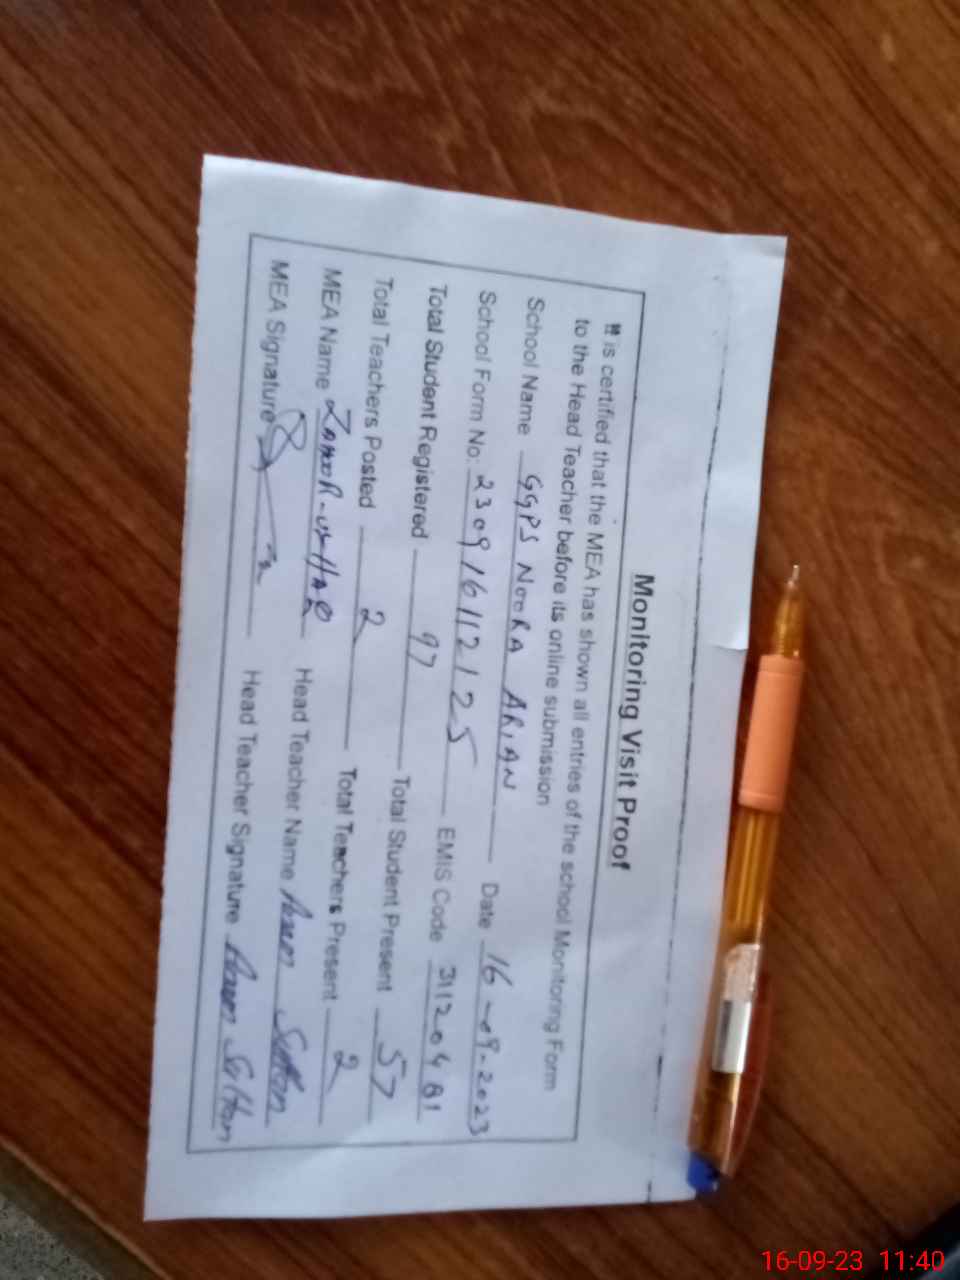 Monitoring Visit Proof
It is certified that the MEA has shown all entries of the school Monitoring Form
to the Head Teacher before its online submission
School Name GGPS NOORA ARIAN Date 16-09-2023
School Form No: 230916112125 EMIS Code 31120481
Total Student Registered 97 Total Student Present 57
Total Teachers Posted 2 Total Teachers Present 2
MEA Name ZAHOOR-UL-HAQ Head Teacher Name
MEA Signature Head Teacher Signature
16-09-23 11:40